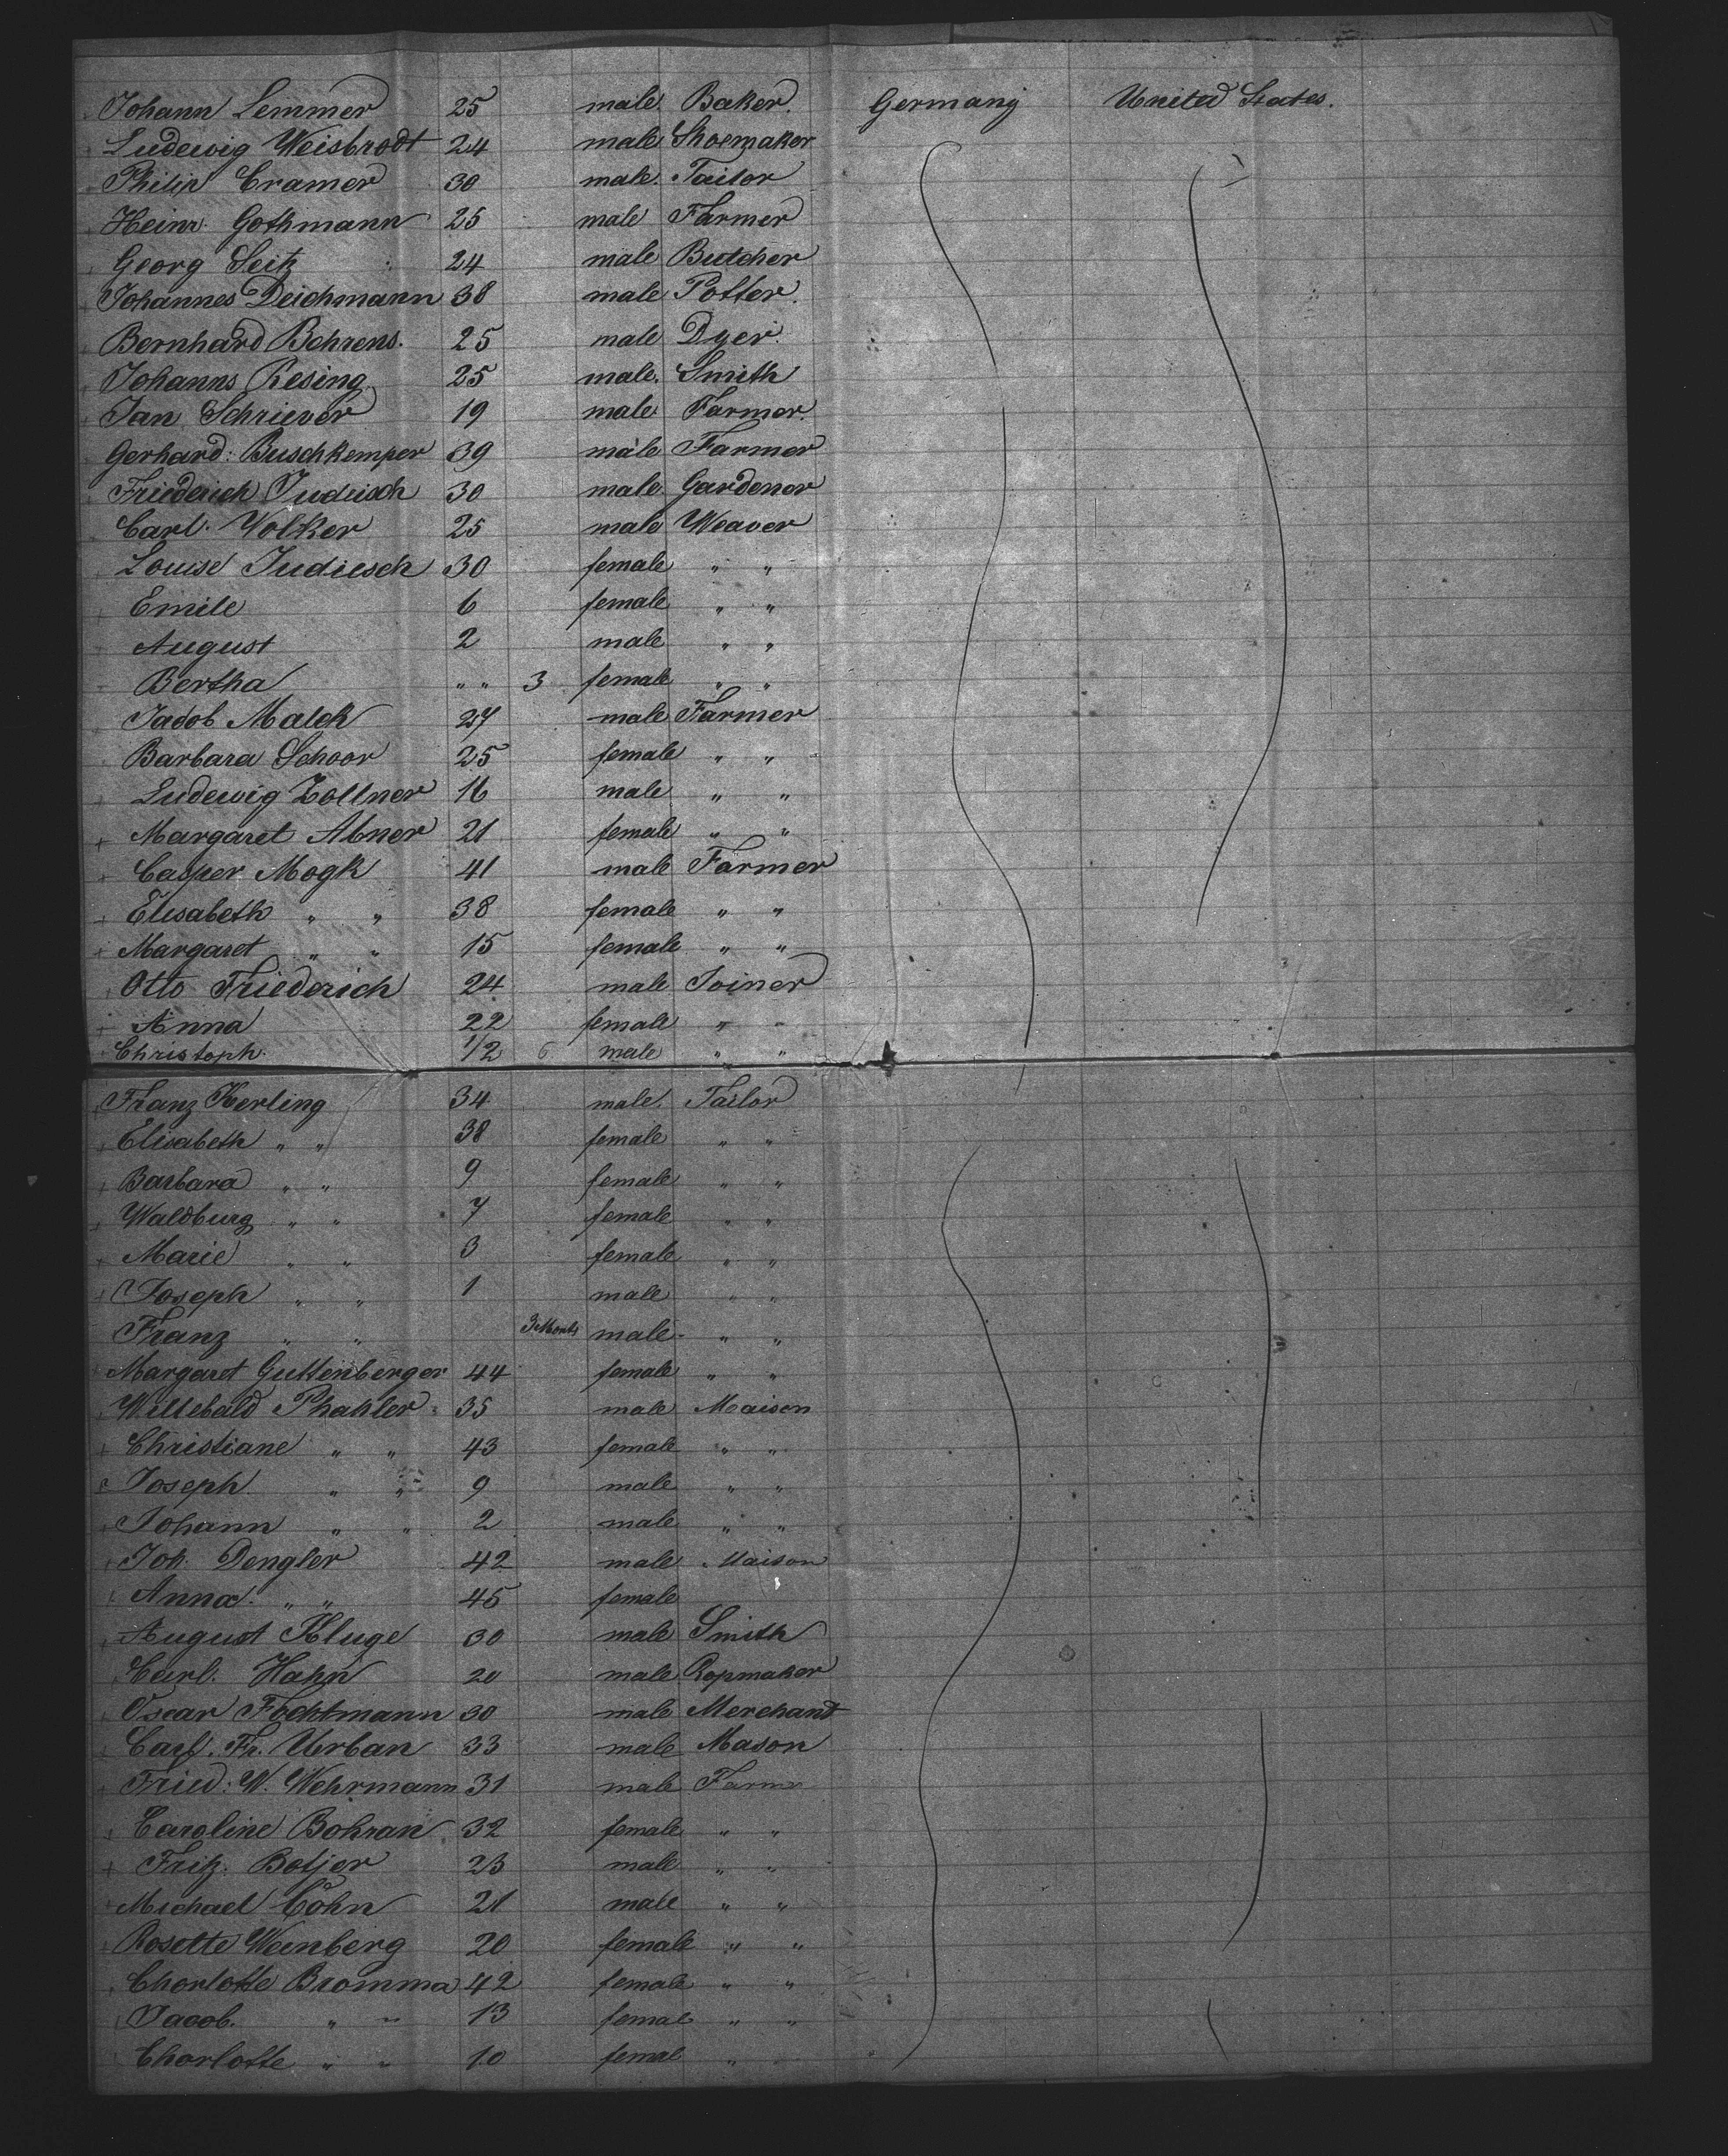 Johann Lemmer 25 male Baker. Germany United States.
Ludewig Weisbrodt 24 male Shoemaker
Philip Cramer 30 male. Tailor
Heinr. Gothmann 25 male Farmer
Georg Seitz 24 male Butcher
Johannes Deichmann 38 male Potter.
Bernhard Behrens. 25 male Dyer.
Johanns Resing 25 male. Smith
Jan Schriever 19 male Farmer.
Gerhard: Buschkemper 39 male Farmer
Friederich Judiesch 30 male. Gardener
Carl. Volker 25 male Weaver
Louise Judiesch 30 female " "
Emile 6 female " "
August 2 male " "
Bertha " " 3 female " "
Jacob Malck 27 male Farmer
Barbara Schoor 25 female " "
Ludewig Zollner 16 male " "
Margaret Abner 21 female " "
Casper Mogk 41 male Farmer
Elisabeth " " 38 female " "
Margaret " " 15 female " "
Otto Friederich 24 male Joiner
Anna 22 female " "
Christoph. 1/2 6 male " "
Franz Kerling 34 male. Tailor
Elisabeth " " 38 female " "
Barbara " " 9 female " "
Waldburg " " 7 female " "
Marie " " 3 female " "
Joseph " " 1 male " "
Franz " " 3 Monts male " "
Margaret Guttenberger 44 female " "
Willebald Phahler 35 male Maison
Christiane " " 43 female " "
Joseph " " 9 male " "
Johann " " 2 male " "
Joh. Dengler 42 male Maison
Anna. " " 45 female
August Kluge 30 male Smith
Carl. Hahn 20 male Ropmaker
Oscar Fochtmann 30 male Merchand
Carl. Fr. Urban 33 male Mason
Fried: W. Wehrmann 31 male Farmer
Caroline Bohran 32 female " "
Fritz. Botjer 23 male " "
Michael Cöhn 21 male " "
Rosette Weinberg 20 female " "
Chorlotte Bromma 42 female " "
Jacob. " " 13 femal " "
Chorlotte " " 10 femal "